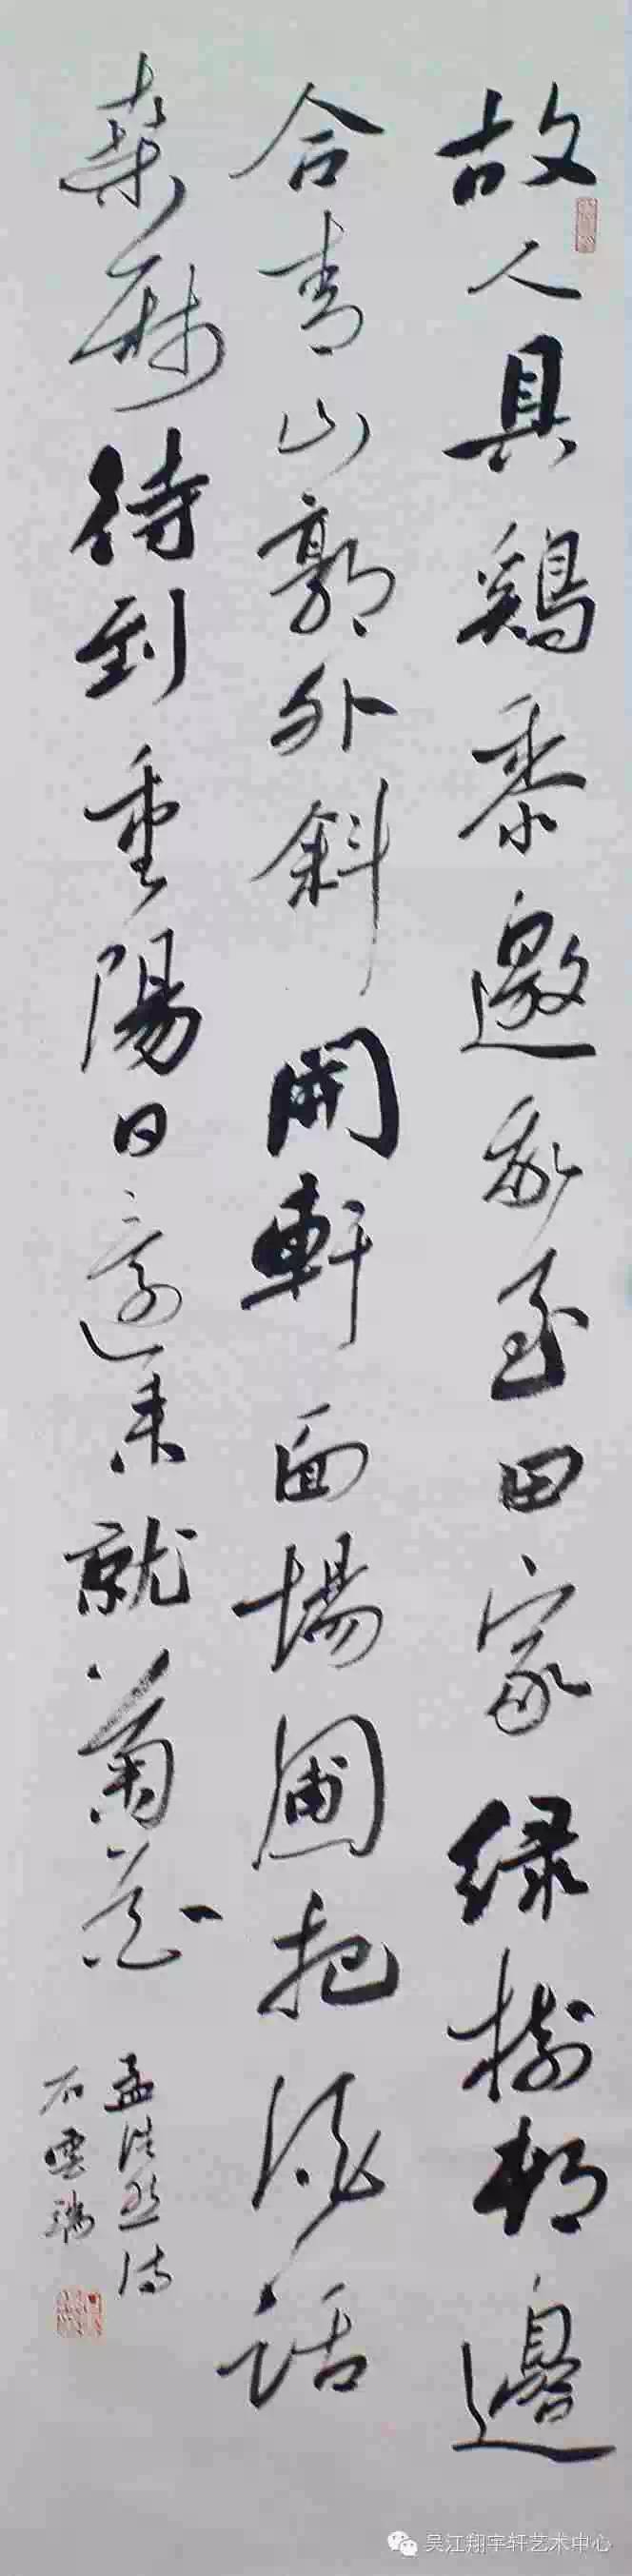 故人具鷄黍邀我至田家緑樹邨邊
合青山郭外斜開軒面場圃把酒話
桑麻待到重陽日還来就菊花
孟浩然詩
石雲瑞
吴江翔宇轩艺术中心